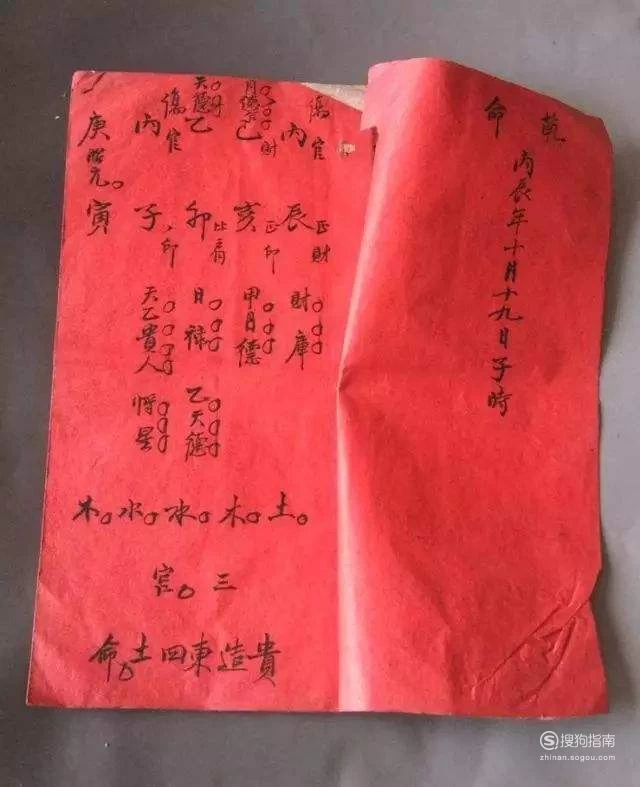 乾
命
丙辰年十月十九日子時
傷官
丙
財
己
天德
乙
傷官
丙
庚
辰
正財
亥
正印
卯
比肩
子
印
寅
財庫
甲月德
日禄
天乙貴人
乙天德
將星
土木水水木
三官
貴造東四土命
搜狗指南
zhinan.sogou.com